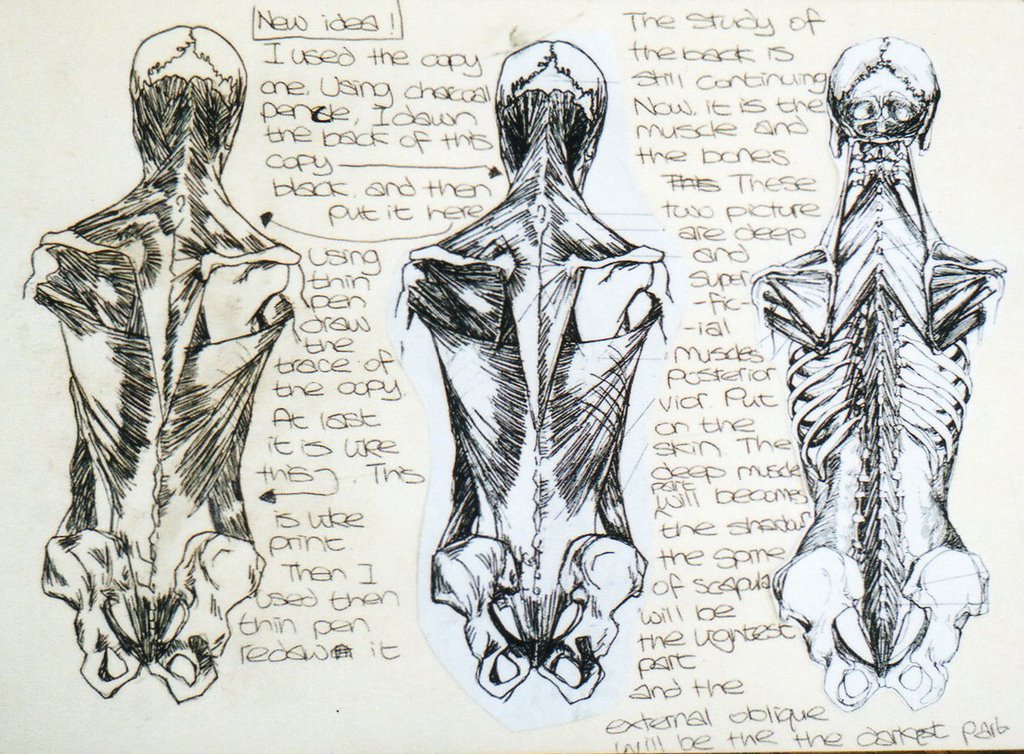 New idea!
I used the copy
one. Using charcoal
pencle, I dawn
the back of this
copy
black. and then
put it here
Using
thin
pen
draw
the
trace of
the copy.
At last
it is like
this. This
is like
print.
Then I
used then
thin pen
redraw it
The study of
the back is
still continuing
Now, it is the
muscle and
the bones.
This These
two picture
are deep
and
superi
-fic-
-ial
muscles
Posterior
vior. Put
on the
skin. The
deep muscle
part
will becomes
the shadow
the spine
of scapula
will be
the lightest
part.
and the
external oblique
will be the the darkest part